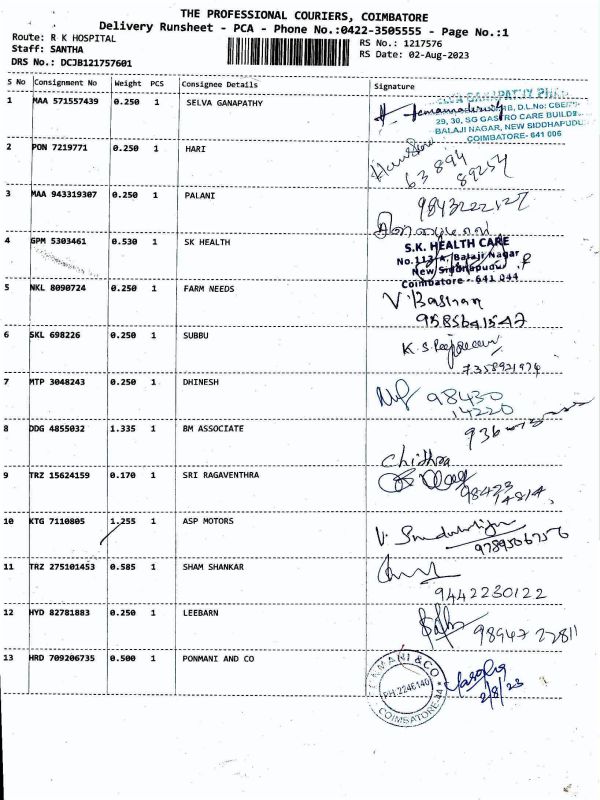 THE PROFESSIONAL COURIERS, COIMBATORE
Delivery Runsheet - PCA - Phone No.:0422-3505555 - Page No.:1
Route: R K HOSPITAL
Staff: SANTHA
DRS No.: DCJB121757601
RS No.: 1217576
RS Date: 02-Aug-2023
S No Consignment No Weight PCS Consignee Details Signature
1 MAA 571557439 0.250 1 SELVA GANAPATHY
GANAPATHY
D.L.No:
29, 30, SG GASTRO CARE BUILD
BALAJI NAGAR, NEW SIDDHAPUDU
COIMBATORE- 641 006
2 PON 7219771 0.250 1 HARI
63 894
89254
3 MAA 943319307 0.250 1 PALANI
9843222127
4 GPM 5303461 0.530 1 SK HEALTH
S.K. HEALTH CARE
No.113-A, Balaji Nagar
New Siddhapudur
Coimbatore - 641 044
5 NKL 8090724 0.250 1 FARM NEEDS
V. Baskaran
9585641547
6 SKL 698226 0.250 1 SUBBU
K.S.
7358921974
7 MTP 3048243 0.250 1 DHINESH
98430
14220
8 DDG 4855032 1.335 1 BM ASSOCIATE
Chithra
9 TRZ 15624159 0.170 1 SRI RAGAVENTHRA
98423
14814
10 KTG 7110805 1.255 1 ASP MOTORS
9789506756
11 TRZ 275101453 0.585 1 SHAM SHANKAR
9442230122
12 HYD 82781883 0.250 1 LEEBARN
98947 22811
13 HRD 709206735 0.500 1 PONMANI AND CO
PONMANI & CO
PH:2246140
COIMBATORE-44
2/8/23